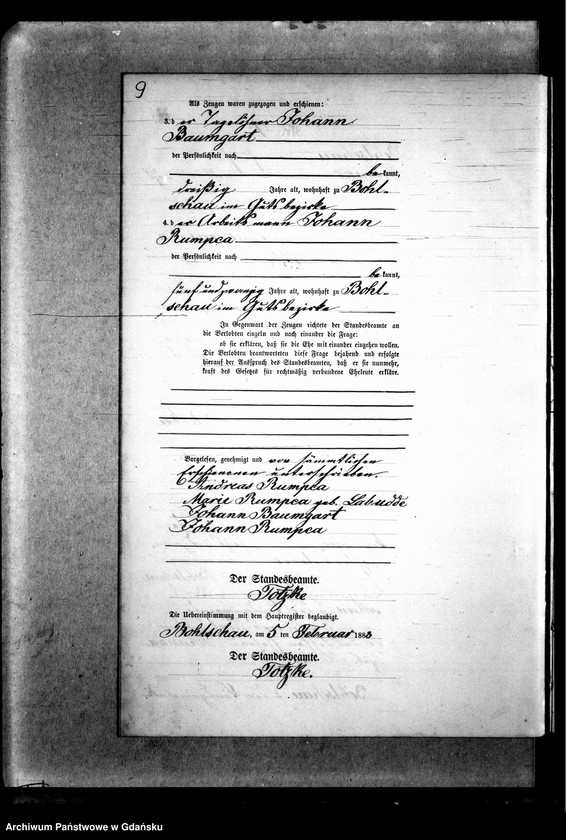 9
Als Zeugen waren zugezogen und erschienen:
3. der Tagelöhner Johann
Baumgart
der Persönlichkeit nach
bekannt,
dreißig Jahre alt, wohnhaft zu Bohl-
schau im Gutsbezirke
4. der Arbeitsmann Johann
Rumpca
der Persönlichkeit nach
bekannt,
fünfundzwanzig Jahre alt, wohnhaft zu Bohl-
schau im Gutsbezirke
In Gegenwart der Zeugen richtete der Standesbeamte an
die Verlobten einzeln und nach einander die Frage:
ob sie erklären, daß sie die Ehe mit einander eingehen wollen.
Die Verlobten beantworteten diese Frage bejahend und erfolgte
hierauf der Ausspruch des Standesbeamten, daß er sie nunmehr,
kraft des Gesetzes für rechtmäßig verbundene Eheleute erkläre.
Vorgelesen, genehmigt und von sämmtlichen
Erschienenen unterschrieben.
Andreas Rumpca
Marie Rumpca geb. Labudde
Johann Baumgart
Johann Rumpca
Der Standesbeamte.
Totzke
Die Uebereinstimmung mit dem Hauptregister beglaubigt.
Bohlschau, am 5 ten Februar 1883
Der Standesbeamte.
Totzke.
Archiwum Państwowe w Gdańsku